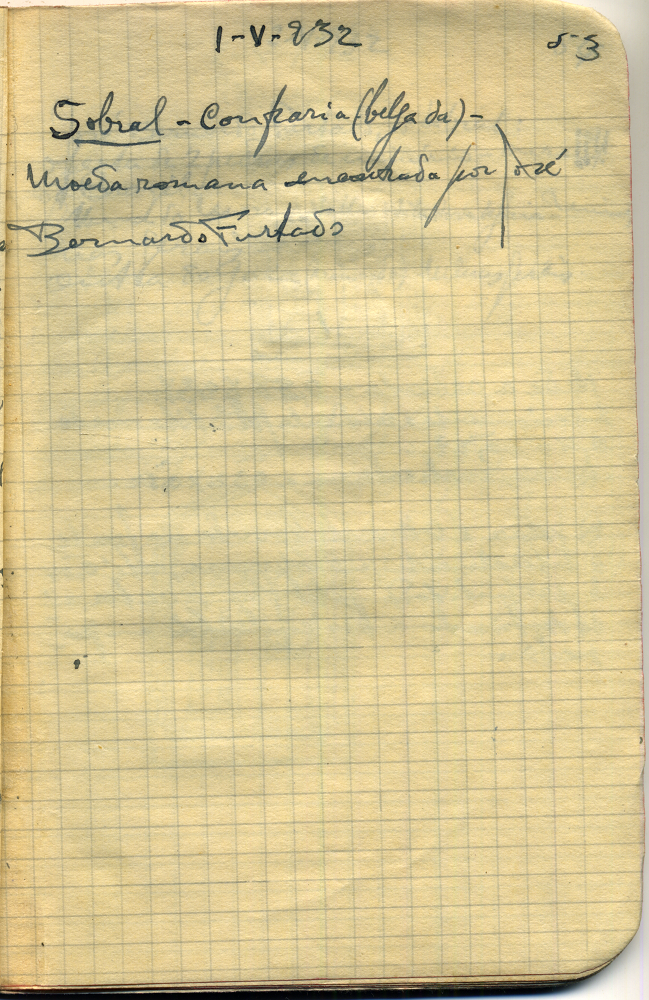 1-V-932 53
Sobral - Confraria (belfada) -
Moeda romana encontrada por José
Bernardo Furtado